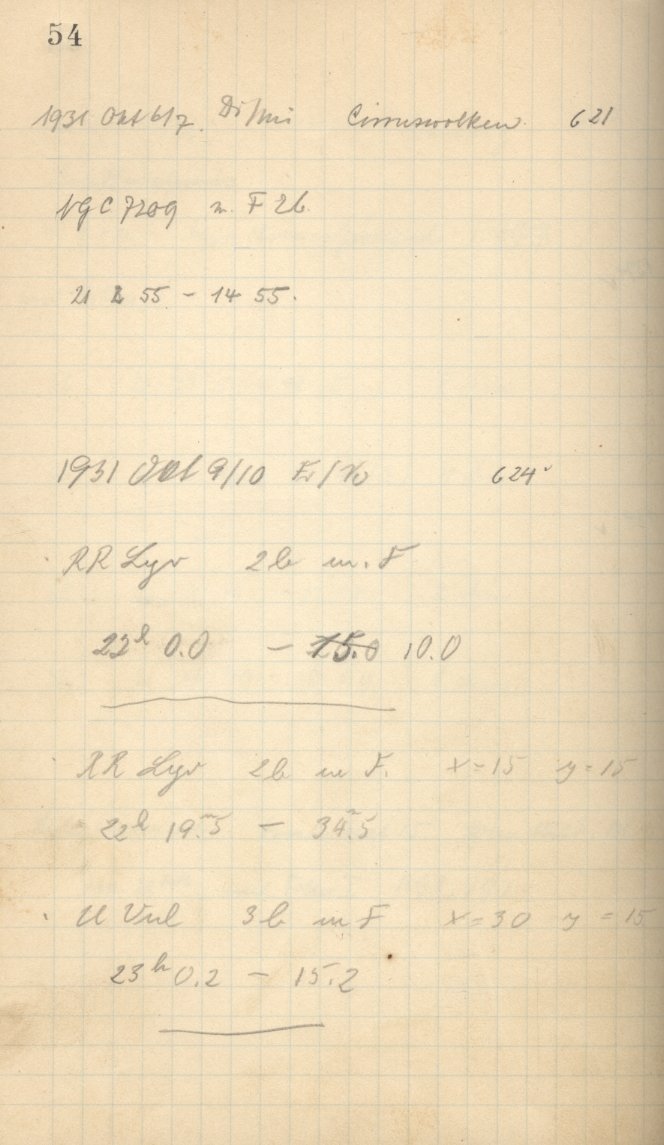 54
1931 Okt 6/7. Di/Mi Cirruswolken. 621
NGC 7209 m. F 2b.
21 h 55 - 14 55.
1931 Okt 9/10 Fr/ 624
RR Lyr 2b m. F
22h 0.0 - 15.0 10.0
RR Lyr 2b m F. x=15 y=15
22h 19m.5 - 34m.5
U Vul 3b m F x=30 y=15
23h 0.2 - 15.2